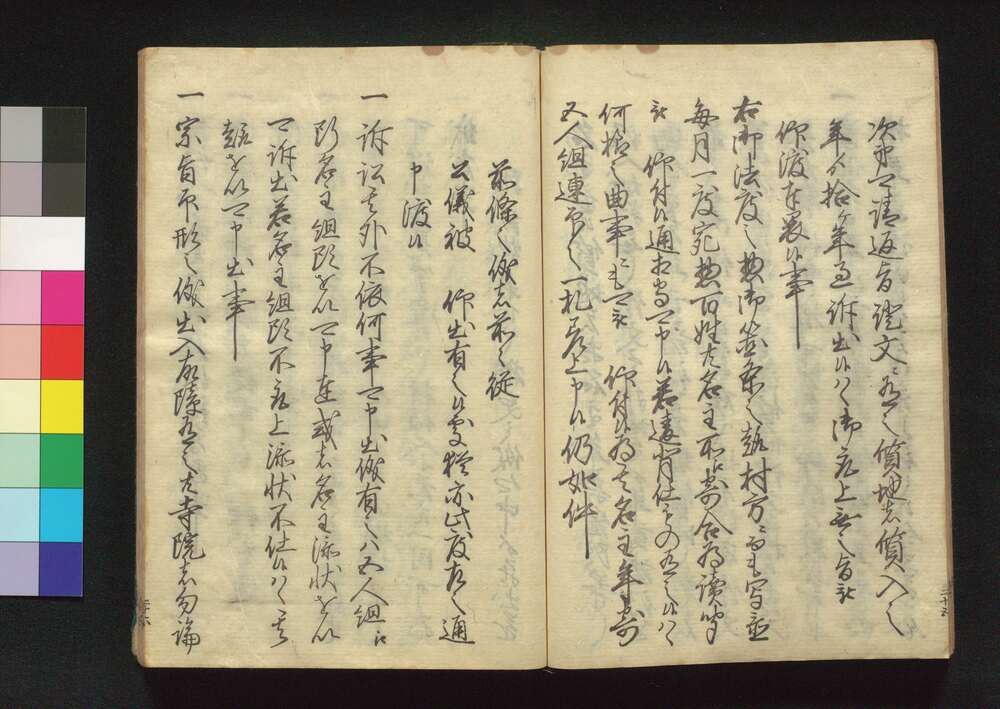 次第可請返旨証文ニ有之質地者質入之
年ゟ拾ヶ年過訴出候ハヽ御取上無之旨被
仰渡奉畏候事
右御法度之趣御箇条之趣村方ニ而も写置
毎月一度宛惣百姓共名主所江寄合為読聞
被 仰付候通相守可申候若違背仕もの有之候ハヽ
何様之曲事ニも可被 仰付候為其名主年寄
五人組連印之一札差上申候仍如件
前條之儀者前々従
公儀被 仰出有之候処猶亦此度左之通
申渡候
一 訴訟其外不依何事可申出儀有之ハ五人組江
断名主組頭を以可申達或者名主添状を以
可訴出若名主組頭不取上添状不仕候ハヽ其
趣を以可申出事
一 宗旨印形之儀出入故障有之共寺院者勿論